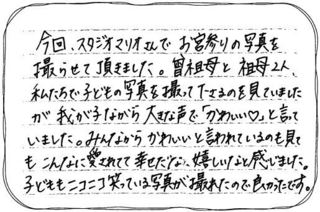 今回、スタジオマリオさんで お宮参りの写真を
撮らせて頂きました。曽祖母と 祖母2人、
私たちで子どもの写真を撮ってたさるのを見ていました
が 我が子ながら 大きな声で「かわいい♡」と言って
いました。みんなから かわいいと言われているのも見て
も こんなに愛されてて幸せだな、嬉しいなと感じました。
子どももニコニコ笑っている写真が撮れたので良かったです。